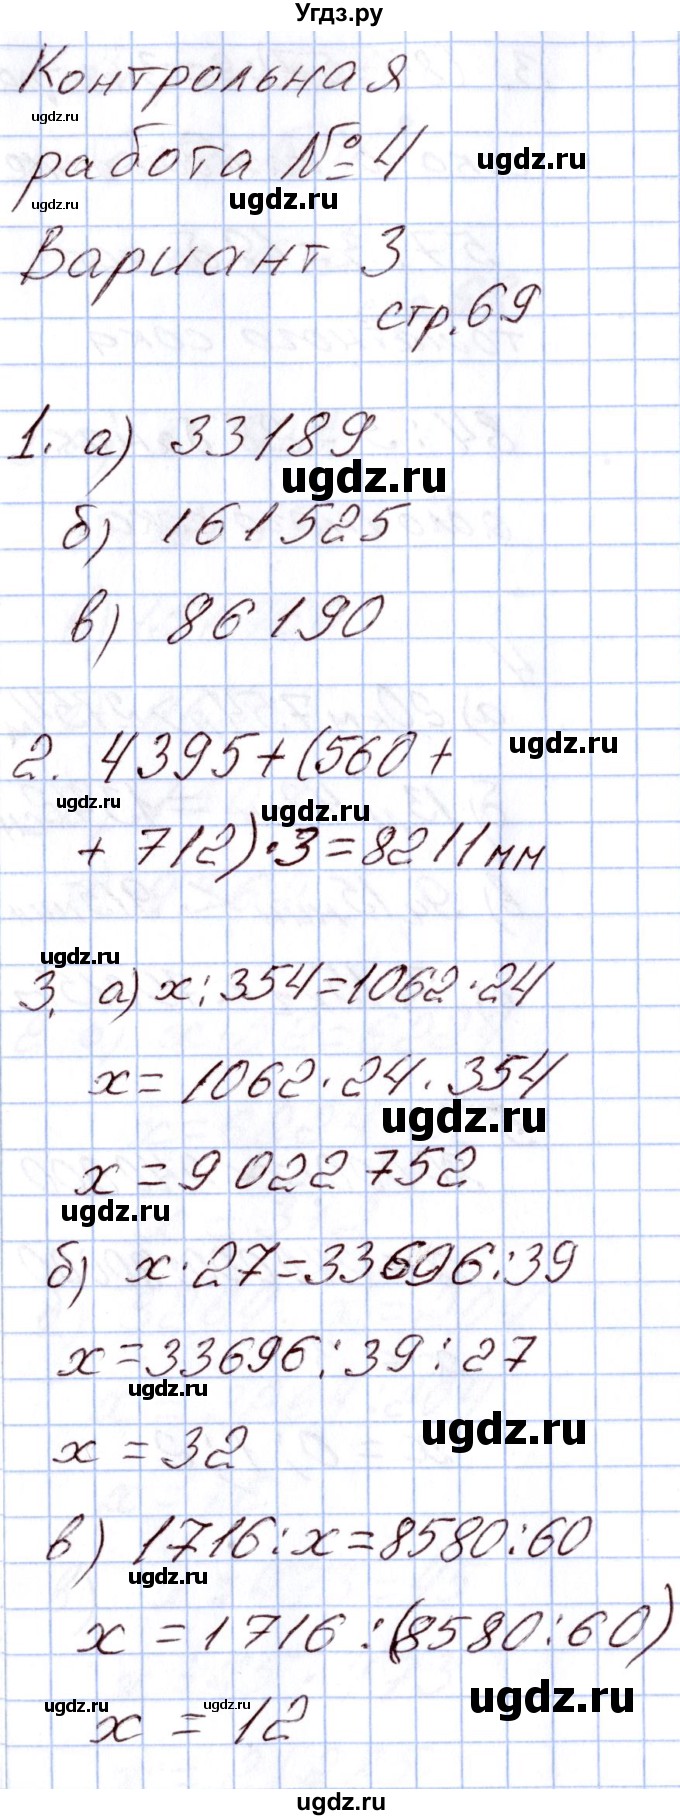 Угдз.ру
Контрольная
ugdz.ru
работа № 4
ugdz.ru
ugdz.ru
ugdz.ru
Вариант 3
стр. 69
1. а) 33189
ugdz.ru
б) 161525
в) 86190
2. 4395+(560+
ugdz.ru
ugdz.ru
ugdz.ru
+ 712)·3=8211мм
ugdz.ru
3. а) x:354=1062·24
x=1062·24·354
ugdz.ru
x=9022752
ugdz.ru
б) x·27=33696:39
x=33696:39:27
ugdz.ru
ugdz.ru
x=32
в) 1716:x=8580:60
ugdz.ru
x=1716:(8580:60)
ugdz.ru
ugdz.ru
ugdz.ru
x=12
ugdz.ru